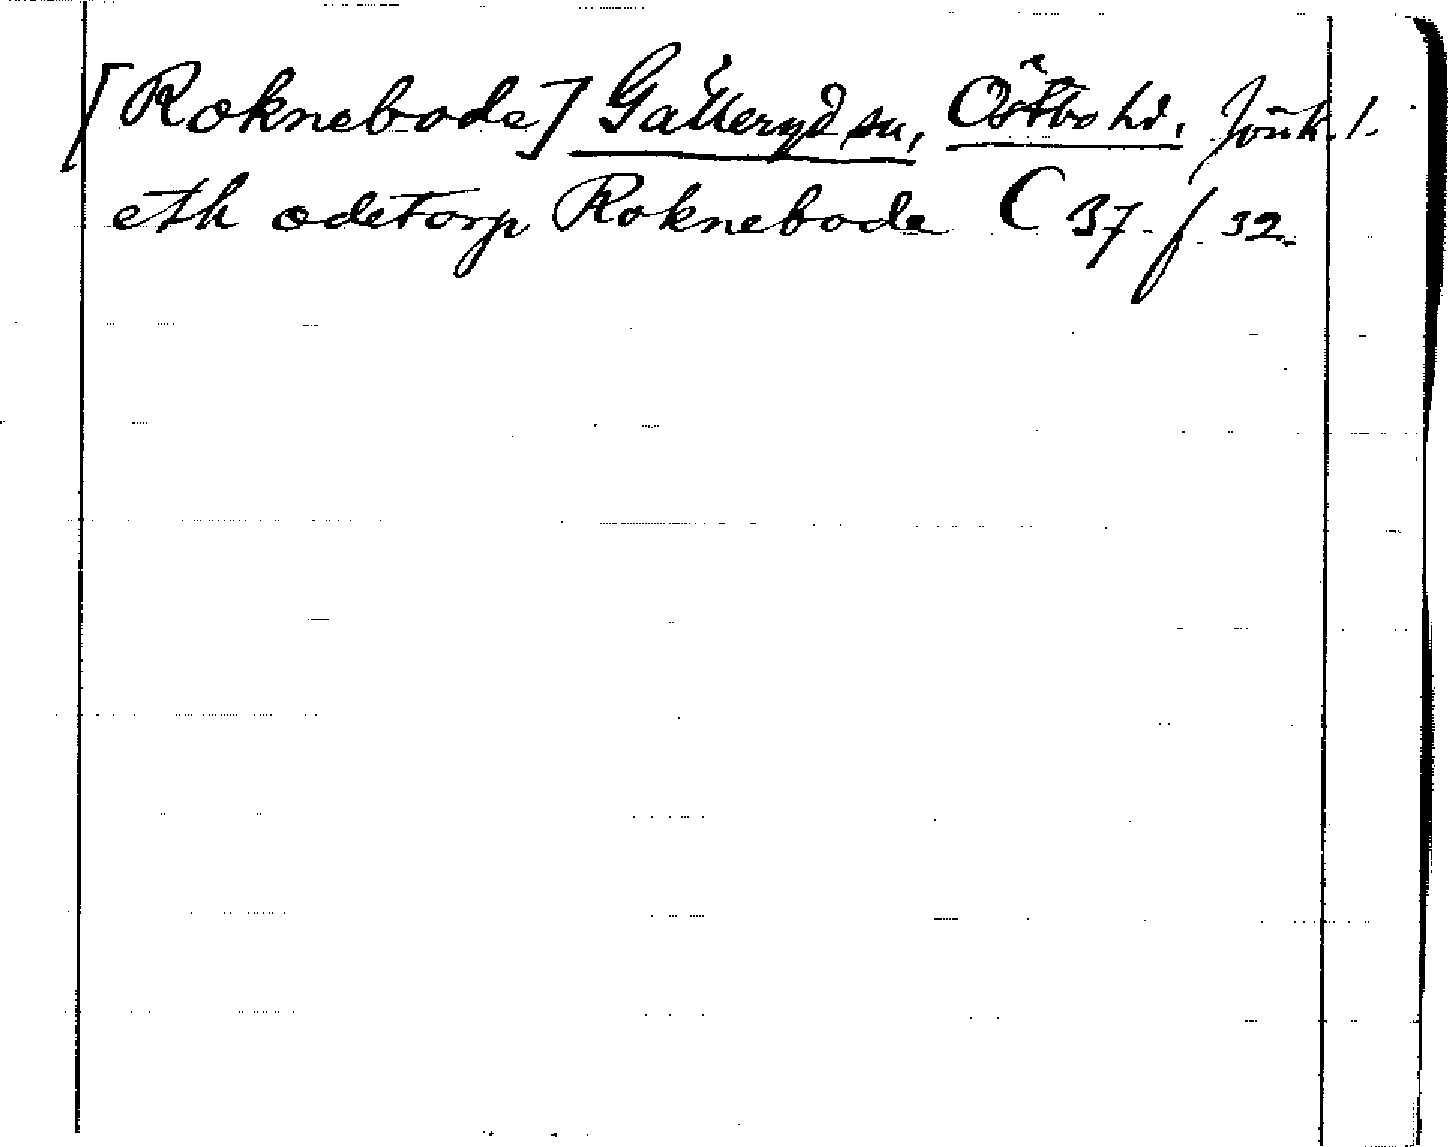 [Roknebode] Gälleryd sn, Östbo hd. Jönk. l.
eth ödetorp Roknebode C 37 f 32